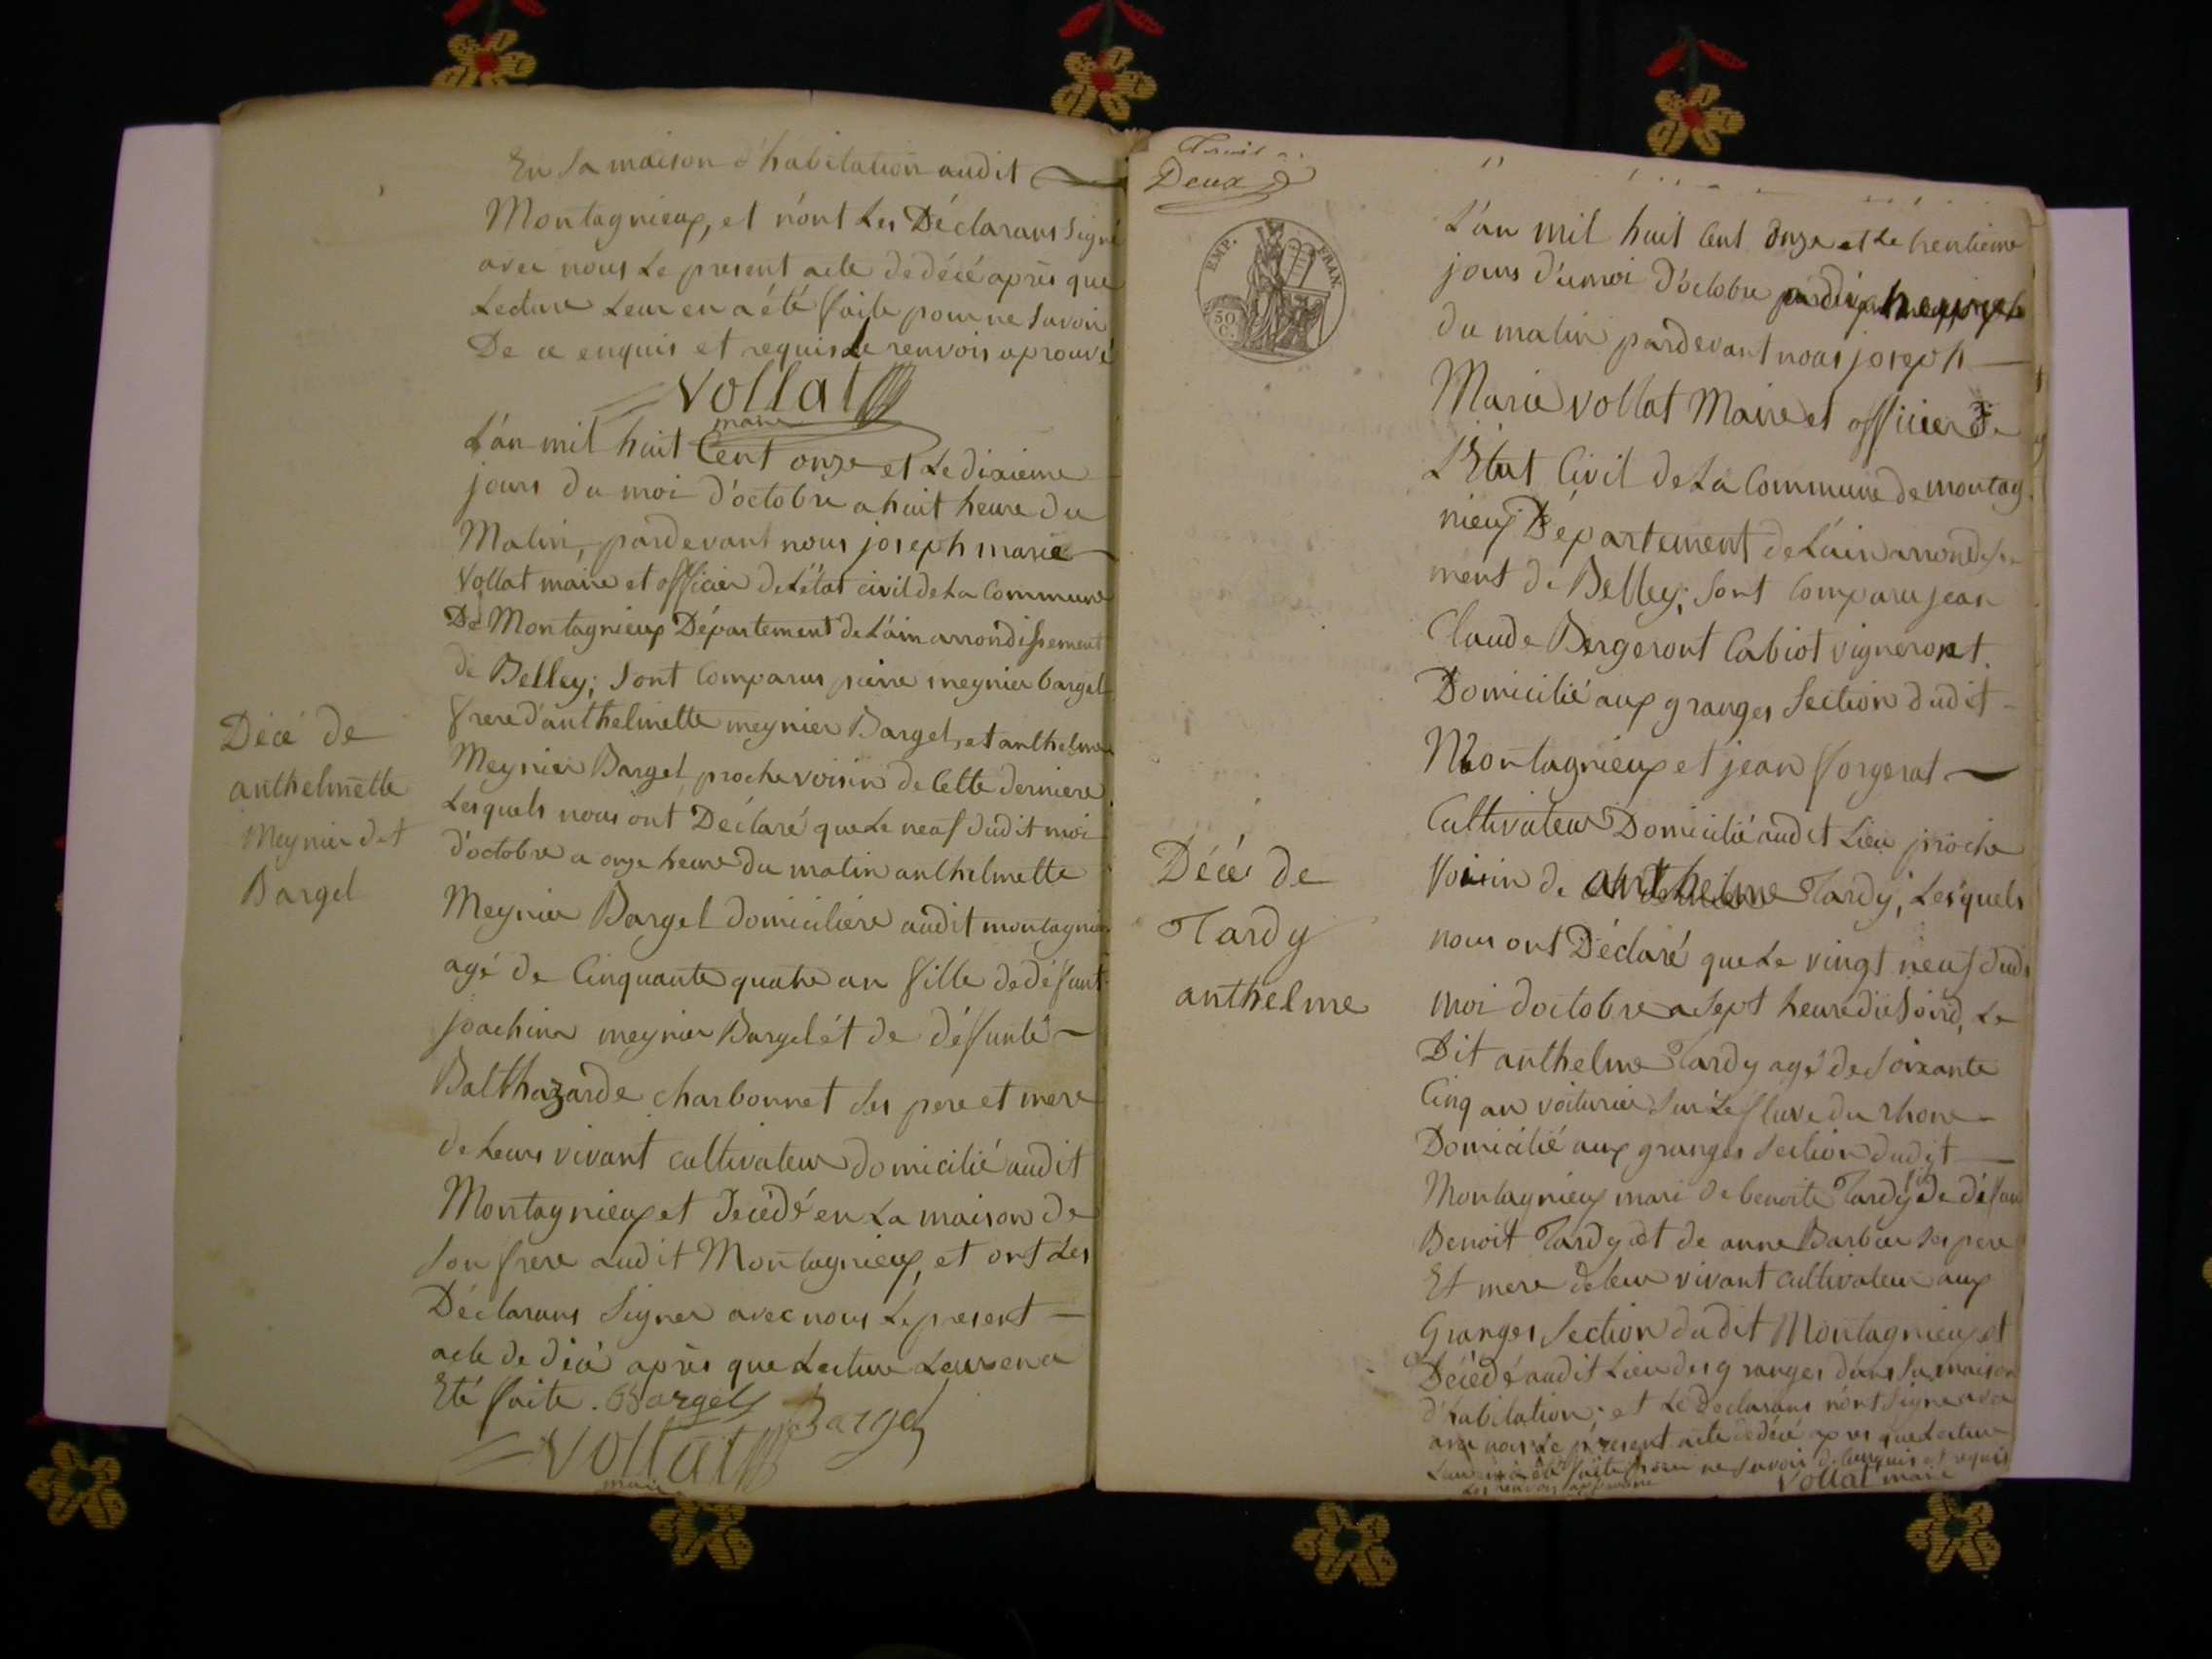 En sa maison d'habitation audit
Montagnieux, et n'ont Les Déclarans Signé
avec nous Le present acte de décé après que
Lecture Leur en a été faite pour ne Savoir
De ce enquis et requis Le renvois aprouvé
Vollat
maire
L'an mil huit Cent onze et Le dixieme
jours du moi d'octobre a huit heure du
Matin, pardevant nous joseph marie
Vollat maire et officier de L'état civil de La Commune
De Montagnieux Département de L'ain arrondissement
de Belley; Sont Comparus pierre meynier bargel
frere d'anthelmette meynier Bargel, et anthelme
Meynier Bargel proche voisin de Cette derniere
Lesquels nous ont Déclaré que Le neuf dudit moi
d'octobre a onze heure du matin anthelmette
Meynier Bargel domiciliére audit montagnieux
agé de Cinquante quatre an fille de défunt
joachim meynier Bargel ét de défunte
Balthazarde charbonnet Ses pere et mere
de Leurs vivant cultivateur domicilié audit
Montagnieux et Decédé en La maison de
Son frere audit Montagnieux, et ont Les
Déclarans Signer avec nous Le present
acte de décé après que Lecture Leur en a
Eté faite. Bargel Bargel
Vollat
maire
Décé de
anthelmette
Meynier dit
Bargel
Deux
EMP. FRAN.
50 C.
L'an mil huit Cent onze et Le trentieme
jours d'umoi d'octobre heure
du matin pardevant nous joseph
Marie Vollat Maire et officier De
L'Etat Civil de La Commune de montag
nieux Département de L'ain arrondisse
ment de Belley; Sont Comparu jean
Claude Bergeront Cabiot vigneront
Domicilié aux granges Section dudit
Montagnieux et jean forgerat
Cultivateur Domicilié audit Lieu proche
Voisin de anthelme Tardy, Lesquels
nous ont Déclaré que Le vingt neuf dudi
moi doctobre a Sept heure du Soird, Le
Dit anthelme Tardy agé de Soixante
Cinq an voiturier Sur Le fluve du rhone
Domicilié aux granges Section dudit
Montagnieux mari de benoite Tardy fils de défun
Benoit Tardy et de anne Barbier Ses pere
Et mere de leur vivant cultivateur aux
Granges Section dudit Montagnieux et
Décédé audit Lieu des granges dans Sa maison
d'habitation; et Le Declarans n'ont Signer
avec nous Le present acte de décé apres que Lecture
Leur en a été faite pour ne Savoir de Ce enquis et requis
Les renvois approuvé Vollat maire
Décé de
Tardy
anthelme